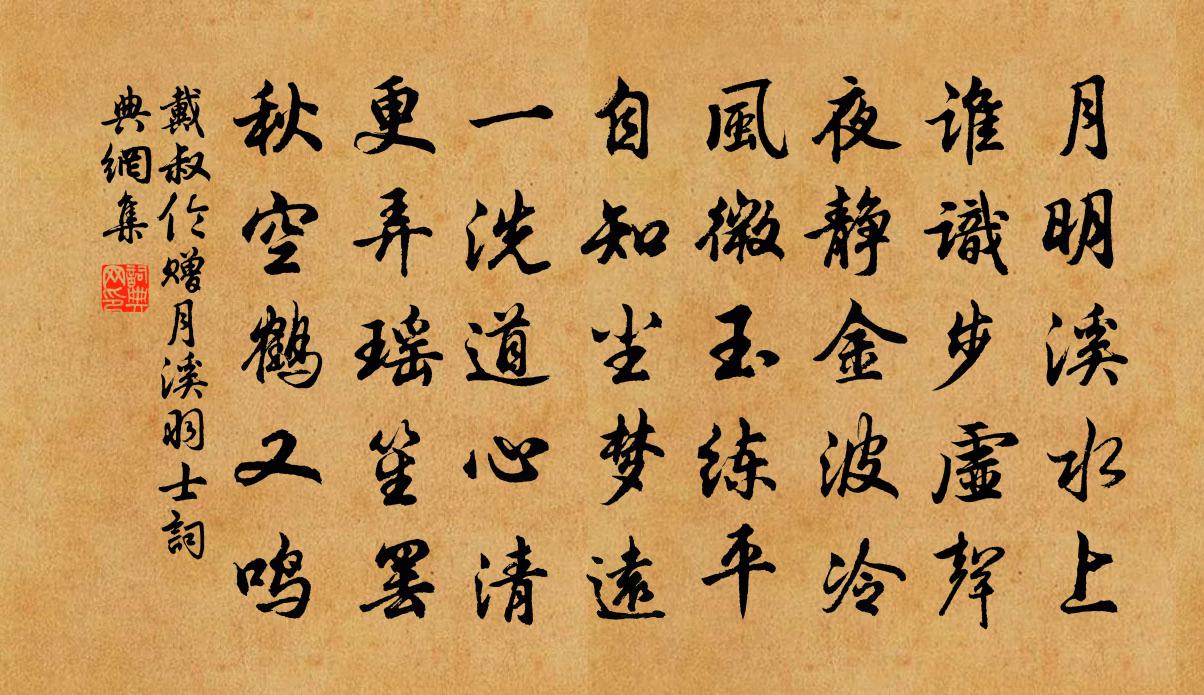 月明溪水上
谁識步虛聲
夜静金波冷
風微玉练平
自知尘梦遠
一洗道心清
更弄瑶笙罢
秋空鹤又鸣
戴叔伦赠月溪羽士詞
典網集
詞典网印